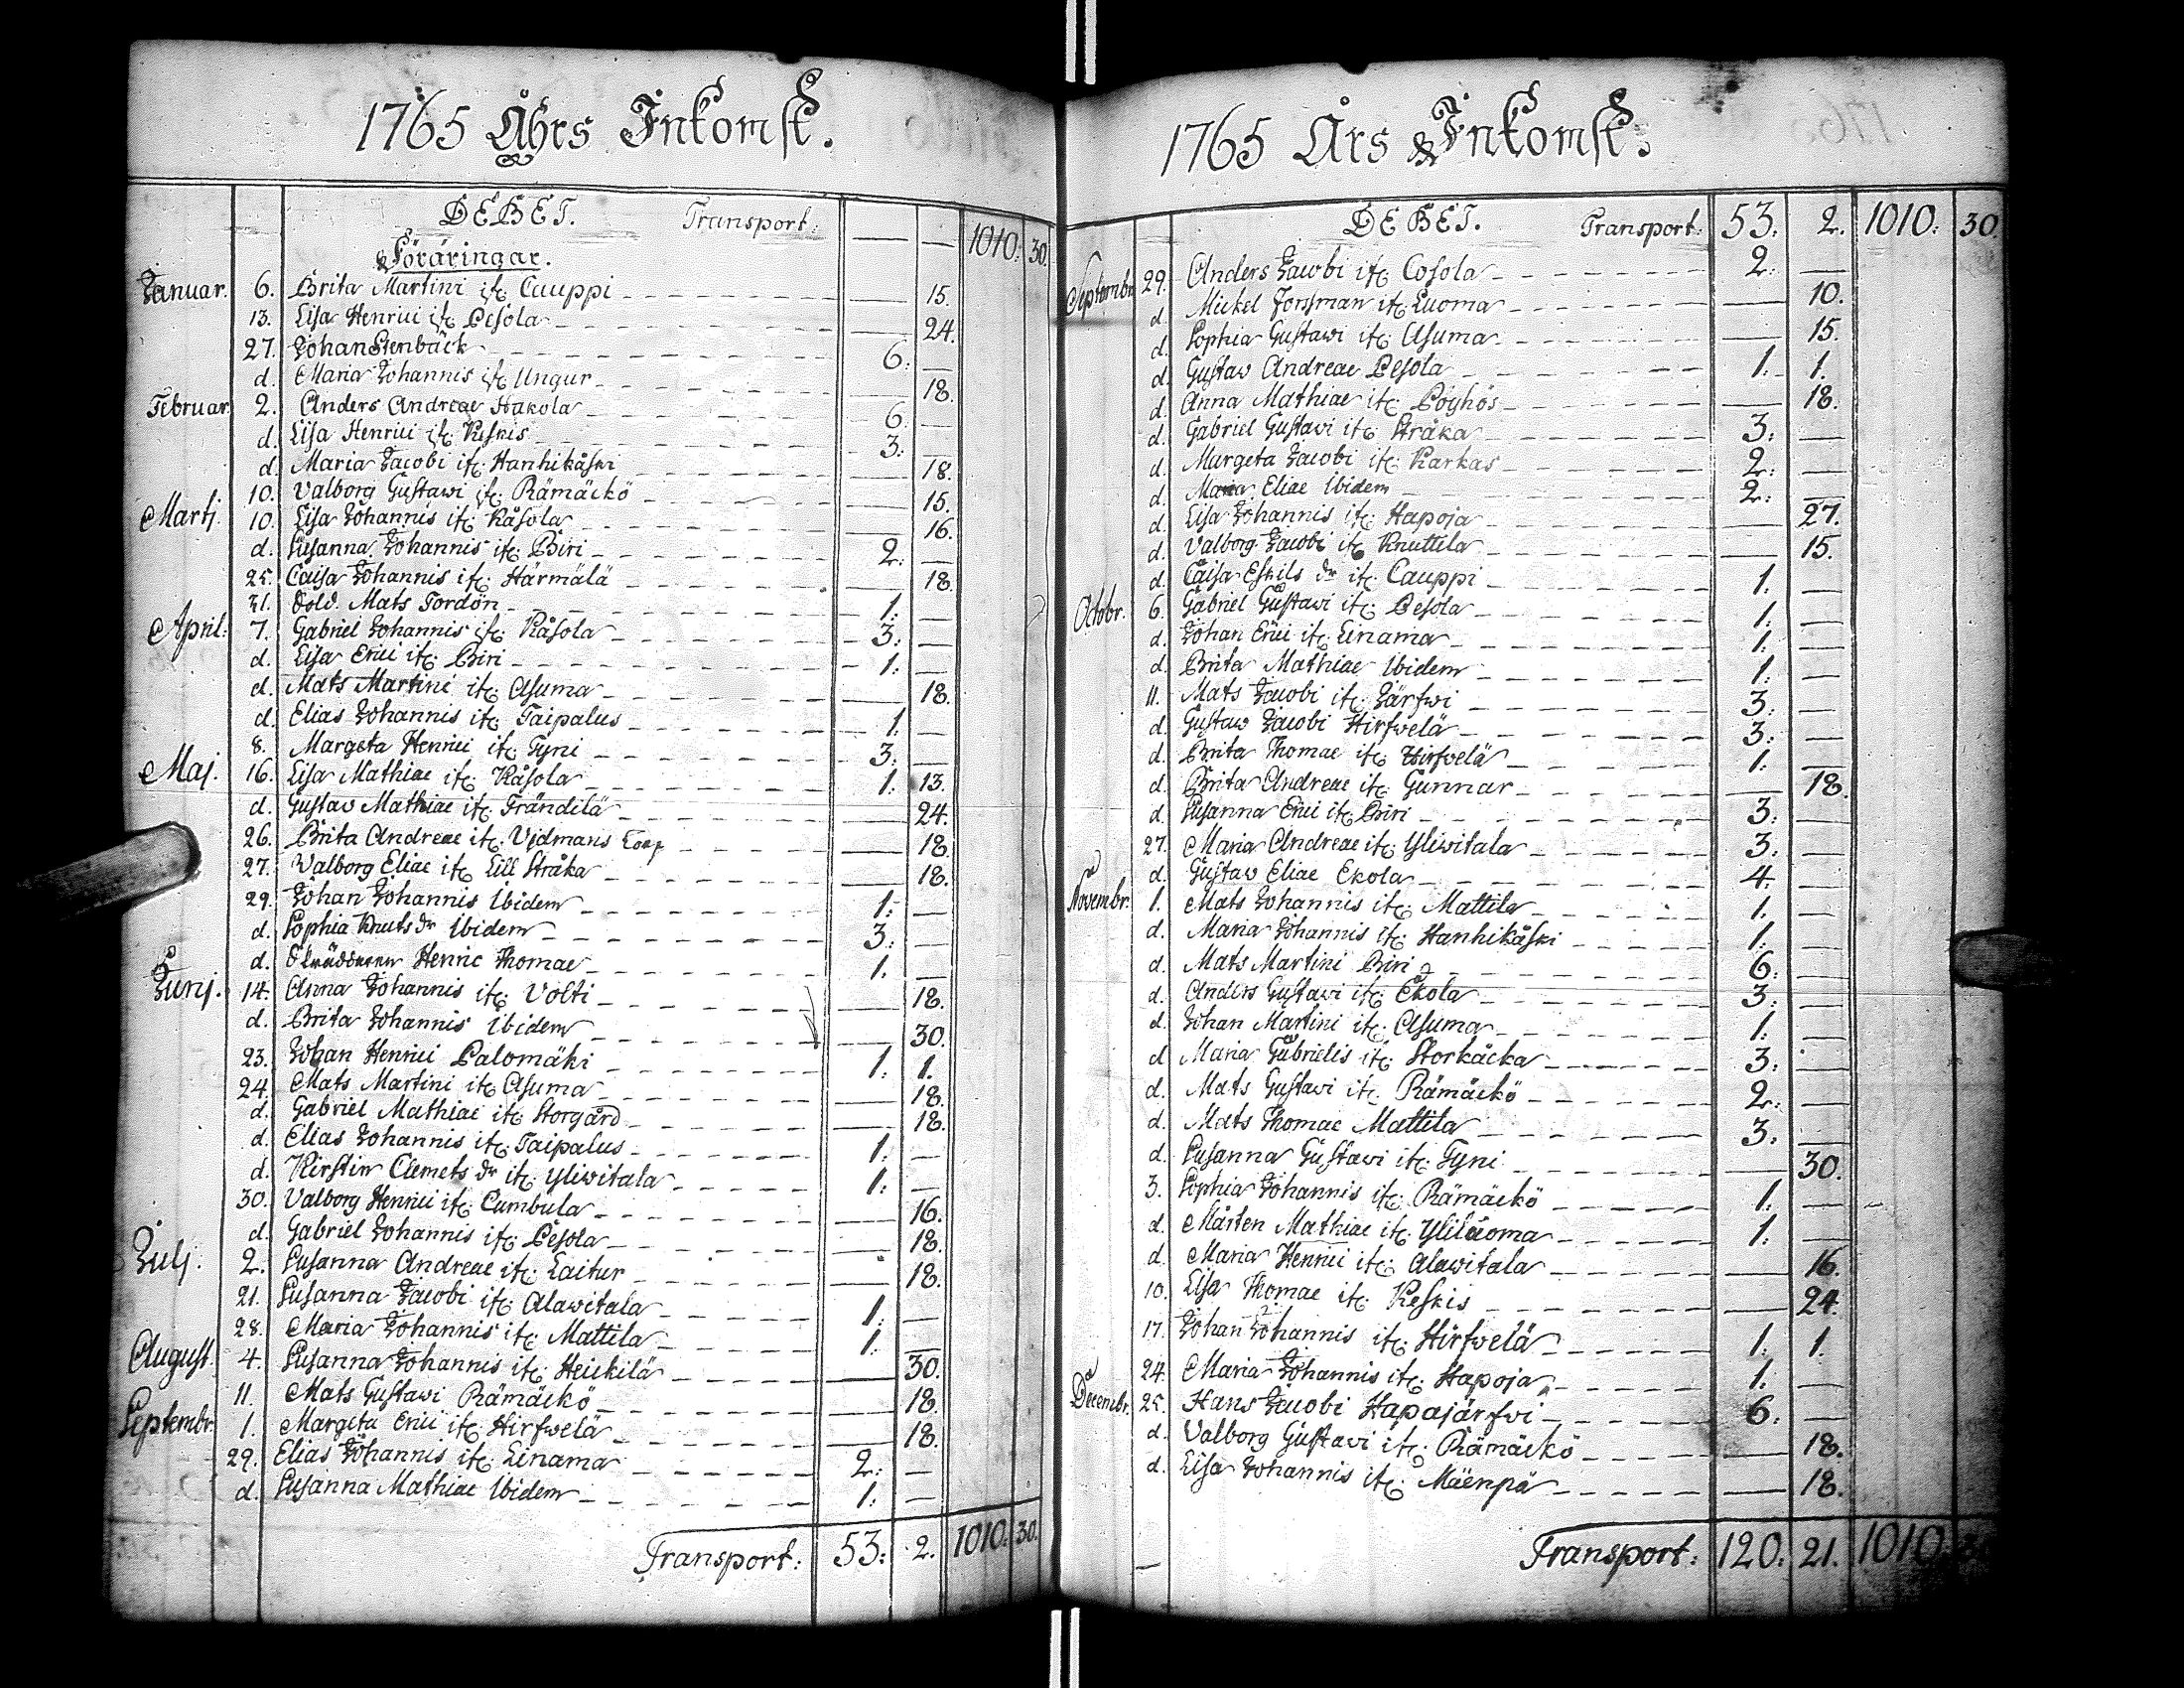 1765 Åhrs Inkomst.
DEBET. Transport: — — 1010: 30.
Föräringar.
Januar. 6. Brita Martini it: Cauppi — 15.
13. Lisa Henrici it: Pesola — 24.
27. Johan Stenbäck 6: —
d. Maria Johannis it: Ungur — 18.
Februar. 2. Anders Andreae Hakola 6. —
d. Lisa Henrici it: Keskis 3: —
d. Maria Jacobi it: Hanhikåski — 18.
10. Valborg Gustawi it: Rämäckö — 15.
Martj. 10. Lisa Johannis it: Kåsola — 16.
d. Susanna Johannis it: Biri 2: —
25. Caisa Johannis it: Härmälä — 18.
31. Sold. Mats Tordön 1: —
April: 7. Gabriel Johannis it: Kåsola 3: —
d. Lisa Erici it: Biri 1: —
d. Mats Martini it: Asuma — 18.
d. Elias Johannis it: Taipalus 1: —
8. Margeta Henrici it: Tyni 3: —
Maj. 16. Lisa Mathiae it: Kåsola 1: 13.
d. Gustav Mathiae it: Frändilä — 24.
26. Brita Andreae it: Vidmans — 18.
27. Walborg Eliae it: Lill Stråka — 18.
29. Johan Johannis Ibidem 1: —
d. Sophia Knuts dr Ibidem 3: —
d. Henric Thomae 1. —
Junj. 14. Anna Johannis it: Volti — 18.
d. Brita Johannis Ibidem — 30.
23. Johan Henrici Palomäki 1: 1.
24. Mats Martini it: Asuma — 18.
d. Gabriel Mathiae it: Storgård — 18.
d. Elias Johannis it: Taipalus 1: —
d. Kirstin Clemets dr it: Yliwitala 1: —
30. Valborg Henrici it: Cumbula — 16.
d. Gabriel Johannis it: Pesola — 18.
Julj. 2. Susanna Andreae it: Laitur — 18.
21. Susanna Jacobi it: Alawitala 1: —
28. Maria Johannis it: Mattila 1: —
August. 4. Susanna Johannis it: Heickilä — 30.
11. Mats Gustawi Rämäckö — 18.
Septembr. 1. Margeta Erici it: Hirfwelä — 18.
29. Elias Johannis it: Linama 2: —
d. Susanna Mathiae Ibidem 1: —
Transport: 53: 2. 1010: 30.
1765 Års Inkomst.
DEBET. Transport: 53: 2. 1010: 30.
Septembr. 29. Anders Jacobi it: Cosola 2: —
d. Mickel Forssman it: Luoma — 10.
d. Sophia Gustawi it: Asuma — 15.
d. Gustav Andreae Pesola 1: 1.
d. Anna Mathiae it: Pöyhös — 18.
d. Gabriel Gustavi it: Stråka 3: —
d. Margeta Jacobi it: Karkas 2: —
d. Maria Eliae Ibidem 2: —
d. Lisa Johannis it: Hapoja — 27.
d. Valborg Jacobi it: Knuttila — 15.
d. Caisa Eskils dr it: Cauppi 1: —
Octobr. 6. Gabriel Gustawi it: Pesola 1: —
d. Johan Erici it: Linama 1: —
d. Brita Mathiae Ibidem 1: —
11. Mats Jacobi it: Järfwi 3: —
d. Gustaw Jacobi Hirfwelä 3: —
d. Brita Thomae it: Hirfwelä 1: —
d. Brita Andreae it: Gunnar — 18.
d. Susanna Erici it: Biri 3: —
27. Maria Andreae it: Yliwitala 3: —
d. Gustav Eliae Ekola 4: —
Novembr. 1. Mats Johannis it: Mattila 1: —
d. Maria Johannis it: Hanhikåski 1: —
d. Mats Martini Biri 6: —
d. Anders Gustavi it: Ekola 3: —
d. Johan Martini it: Asuma 1: —
d. Maria Gabrielis it: Storkåcka 3: —
d. Mats Gustavi it: Rämäckö 2: —
d. Mats Thomae Mattila 3: —
d. Susanna Gustavi it: Tyni — 30.
3. Sophia Johannis it: Rämäckö 1: —
d. Mårten Mathiae it: Yliluoma 1: —
d. Maria Henrici it: Alawitala — 16.
10. Lisa Thomae it: Keskis — 24.
17. Johan Johannis it: Hirfwelä 1: 1.
24. Maria Johannis it: Hapoja 1: —
Decembr. 25. Hans Jacobi Hapajärfwi 6: —
d. Valborg Gustavi it: Rämäckö — 18.
d. Lisa Johannis it: Mäenpä — 18.
Transport: 120: 21. 1010: